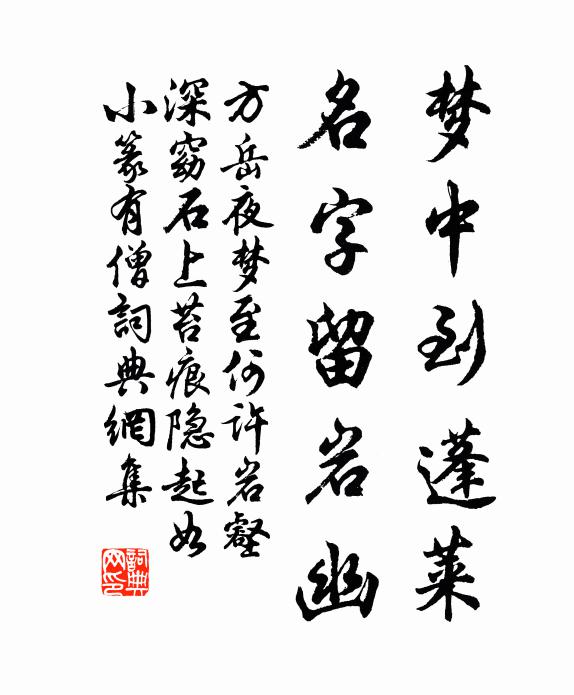 梦中到蓬莱
名字留岩幽
方岳夜梦至何许岩壑
深窈石上苔痕隐起如
小篆有僧詞典網集
詞典
网印